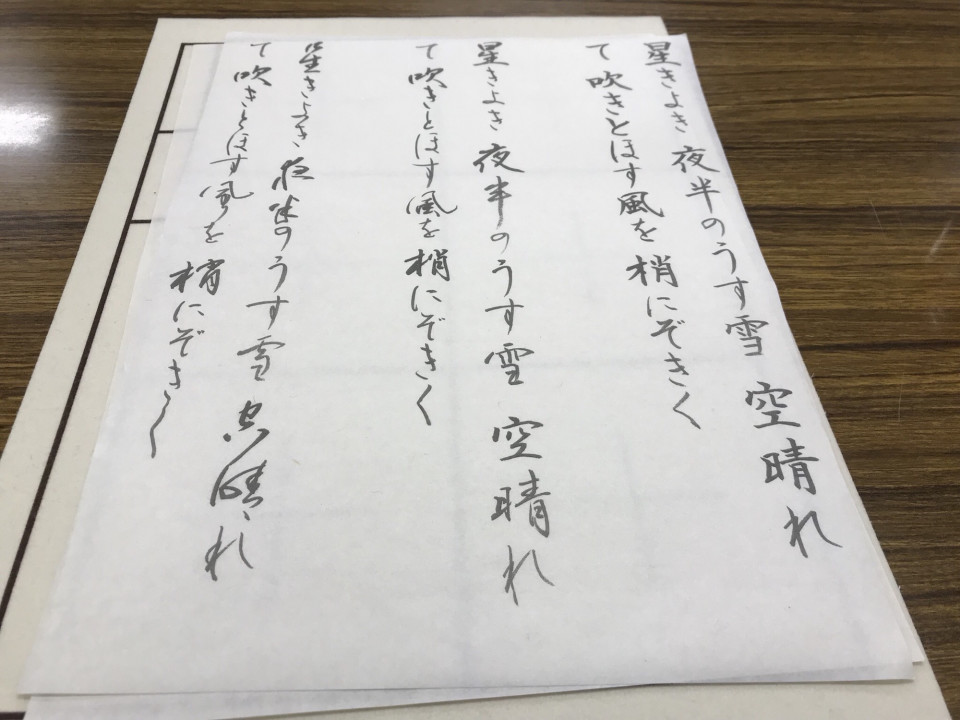 星きよき夜半のうす雪空晴れ
て吹きとほす風を梢にぞきく
星きよき夜半のうす雪空晴れ
て吹きとほす風を梢にぞきく
星きよき夜半のうす雪空晴れ
て吹きとほす風を梢にぞきく